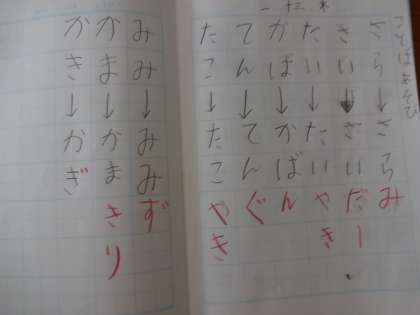 ことばあそび
さら↓さらみ
さい↓さいだー
たい↓たいやき
かば↓かばん
てん↓てんぐ
たこ↓たこやき
みみ↓みみず
かま↓かまきり
かき↓かぎ